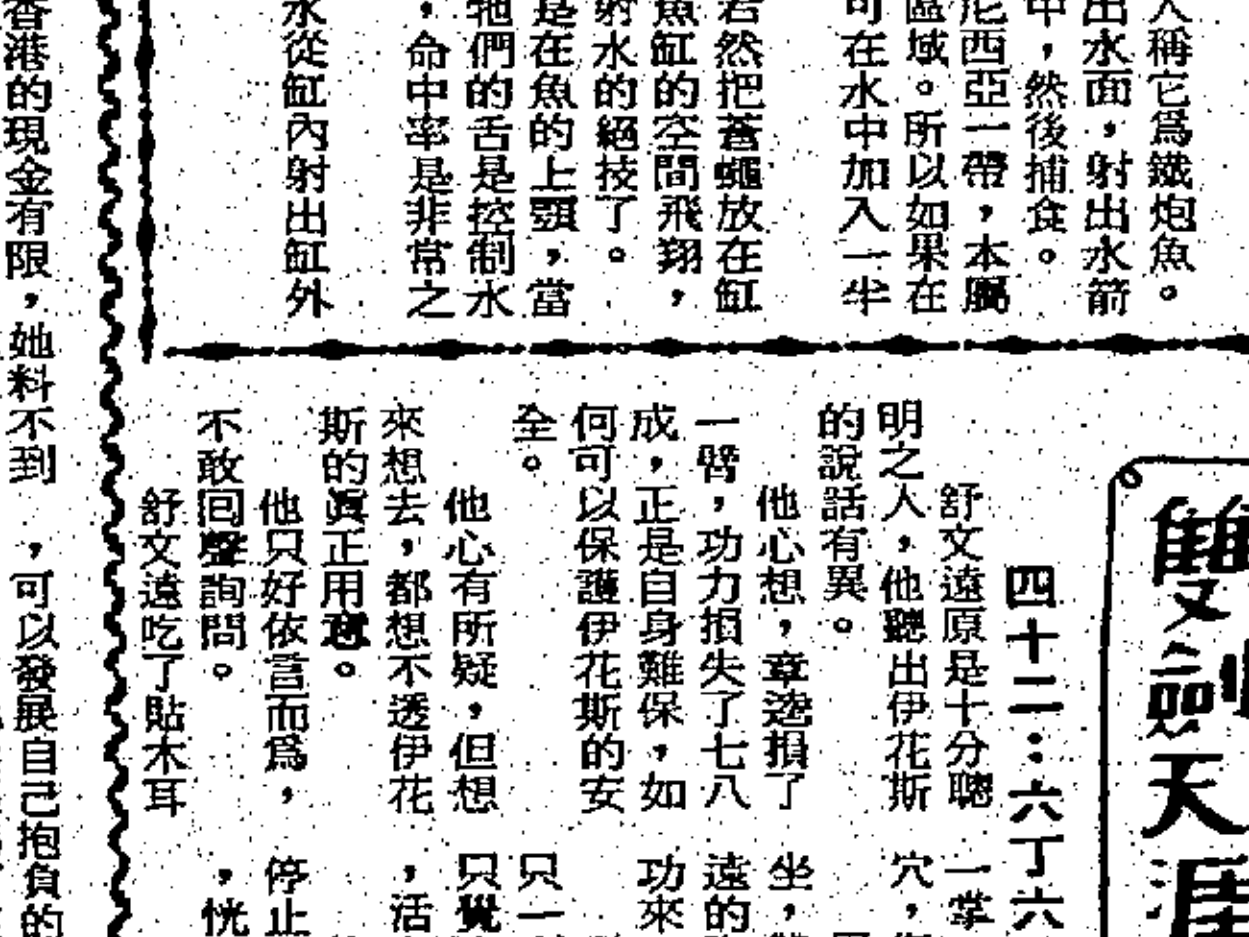 人稱它爲鐵炮魚。
出水面，射出水箭
中，然後捕食。
尼西亞一帶，本屬
區域。所以如果在
可在水中加入一半
若然把蒼蠅放在缸
魚缸的空間飛翔，
射水的絕技了。
是在魚的上顎，當
牠們的舌是控制水
，命中率是非常之
水從缸內射出缸外
雙劍天涯
四十二：六丁六
舒文遠原是十分聰
明之人，他聽出伊花斯
的說話有異。
他心想，章逵損了
一臂，功力損失了七八
成，正是自身難保，如
何可以保護伊花斯的安
全。
他心有所疑，但想
來想去，都想不透伊花
斯的眞正用意。
他只好依言而爲，
不敢回聲詢問。
舒文遠吃了貼木耳
一掌
穴，
坐，
遠的
功來
只一
只覺
，活
停止
，恍
香港的現金有限，她料不到
，可以發展自己抱負的